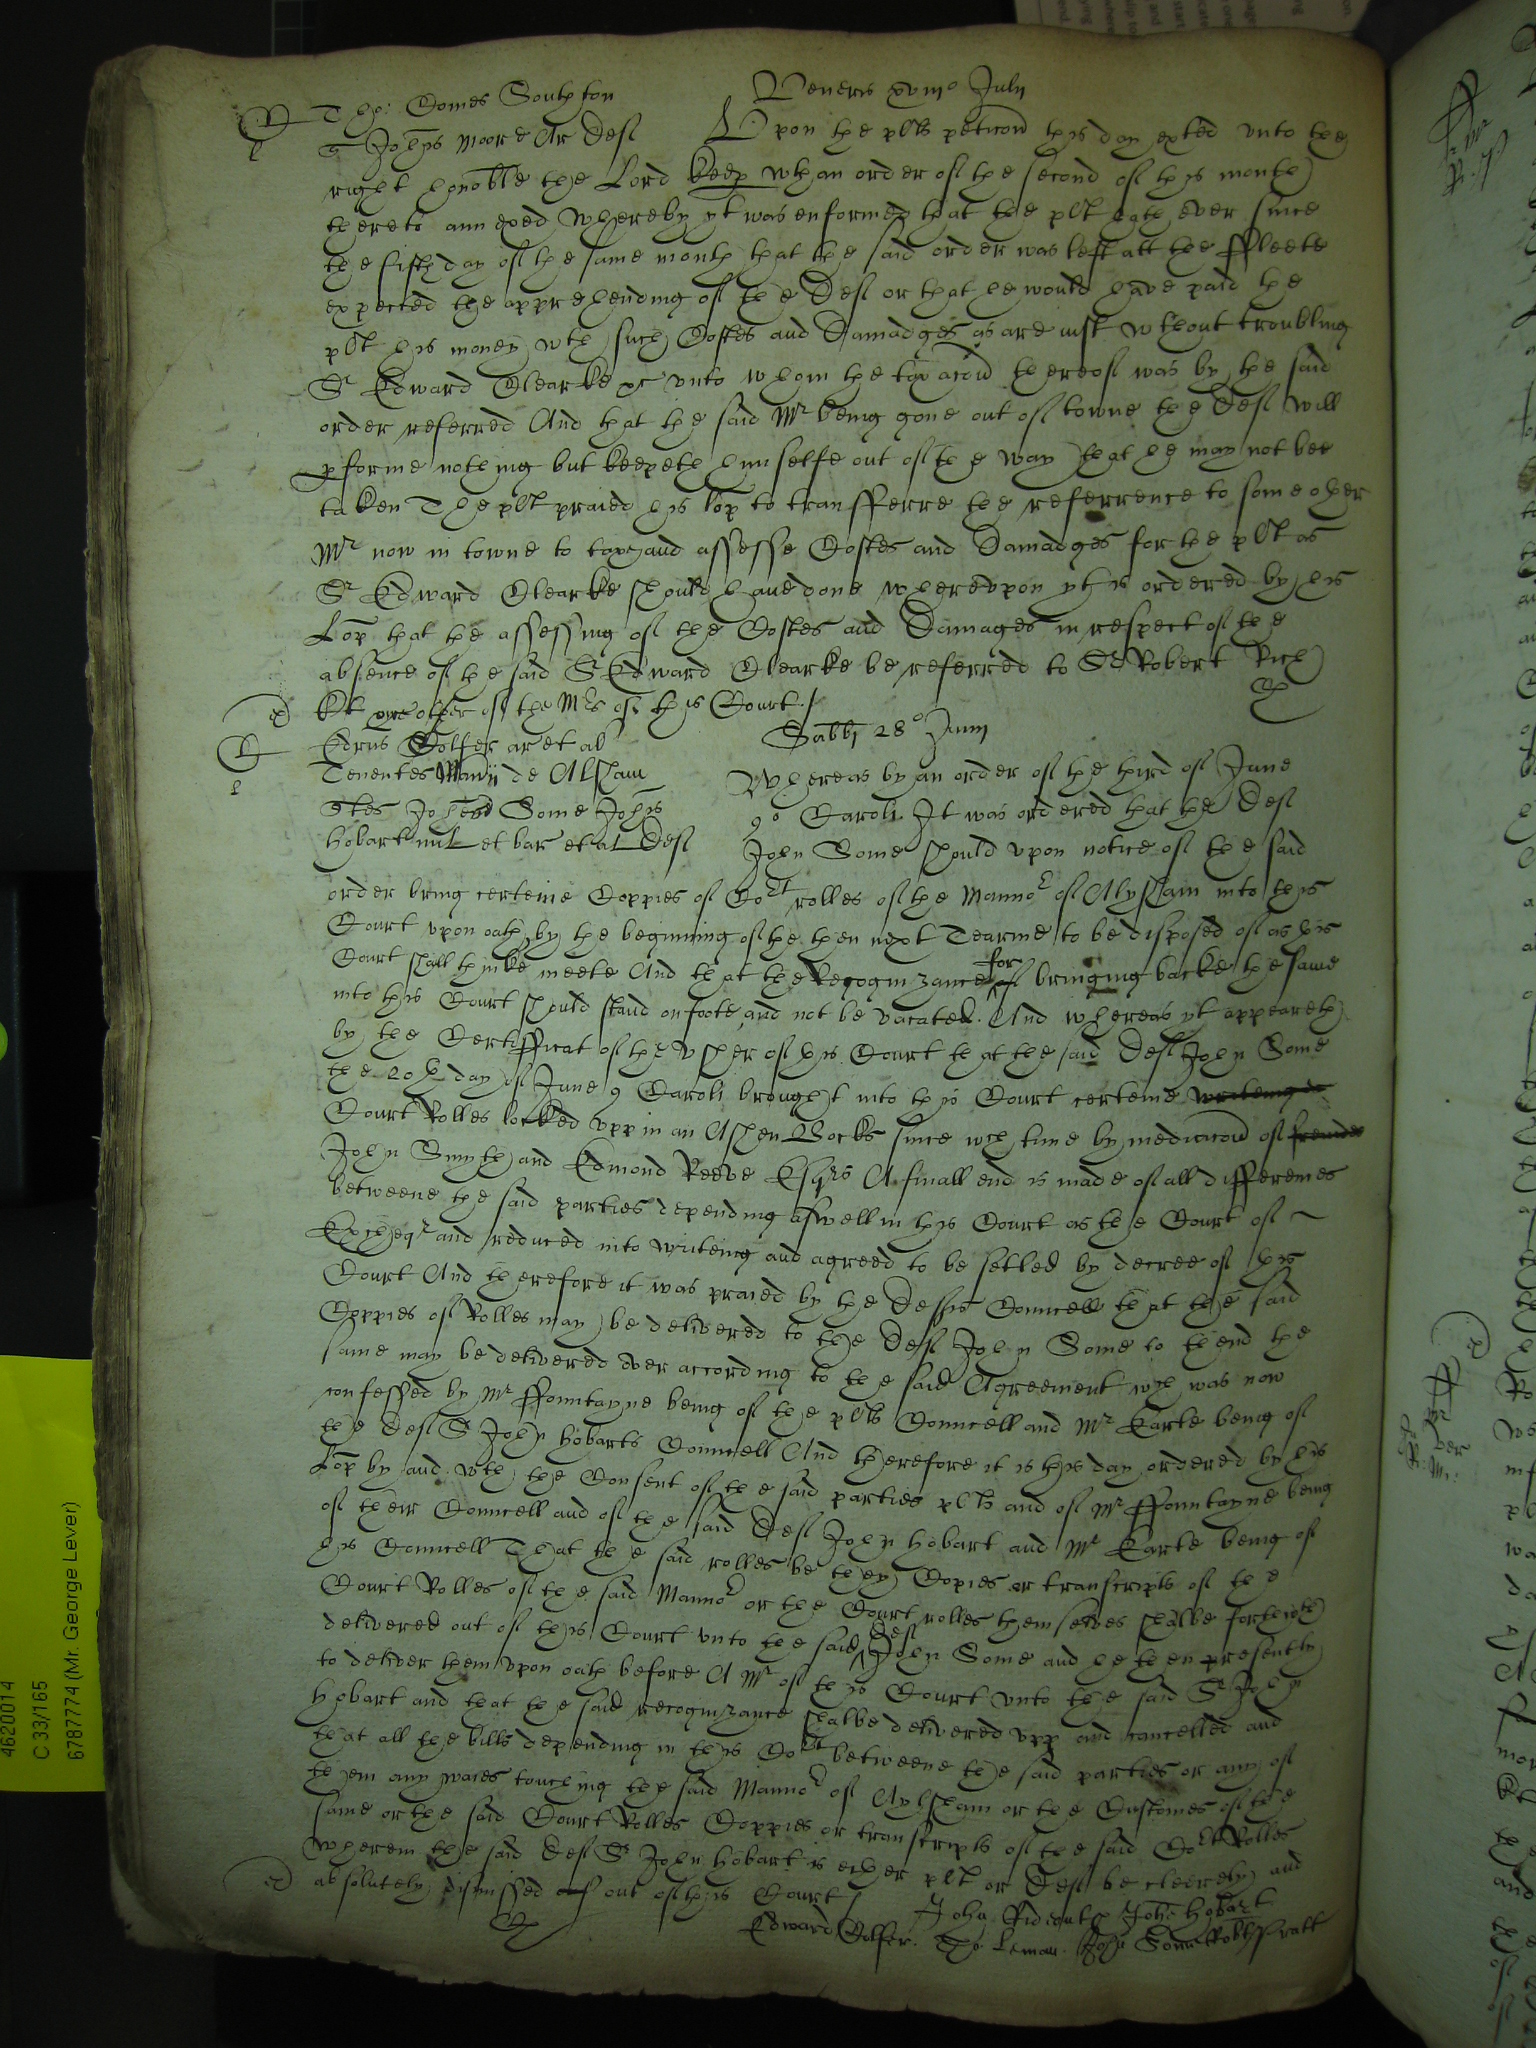 Veneris xviii° Julii
Tho: Comes Southton
Johes Moore Ar Def Upon the plts peticon this day exted unto the
right honoble the Lord keep wth an order of the second of this month
thereto annexed whereby yt was enformed that the plt hath ever since
the fifth day of the same month that the said order was left att the ffleete
expected the apprehending of the Def or that he would have paid the
plt his money wth such Costes and Damadges as are iust wthout troubling
Sr Edward Clearke unto whom the taxacon thereof was by the said
order referred And that the said Mr being gone out of towne the Def will
pforme nothing but keepeth himselfe out of the way that he may not bee
taken The plt praied his lop to transfferre the referrence to some other
Mr now in towne to tax and assesse Costes and Damadges for the plt as
Sr Edward Clearke should have done whereupon yt is ordered by his
Lop that the assessing of the Costes and Damages in respect of the
absence of the said Sr Edward Clearke be referred to Sr Robert Rich
Kt one other of the Mrs of this Court /
Sabbi 28° Junii
Edrus Colfer ar et al
Tenentes Manii de Alsham
Johes Some Johes
Hobart mil et bar et al Def
Whereas by an order of the third of June
9° Caroli It was ordered that the Def
John Some should upon notice of the said
order bring certeine Coppies of Cort rolles of the Mannor of Alysham into this
Court upon oath by the beginning of the then next Tearme to be disposed of as this
Court shall thinke meete And that the Recognizance for bringing backe the same
into this Court should stand on foote and not be vacated. And whereas yt appeareth
by the Certifficat of the Usher of this Court that the said Def John Some
the 20th day of June 9 Caroli brought into this Court certeine writeings
Court Rolles locked upp in an Ashen Bocks since wch time by mediacon of freindes
John Smyth and Edmond Reeve Esqrs A finall end is made of all differences
betweene the said parties depending aswell in this Court as the Court of
Exchequr and reduced into writeing and agreed to be setled by decree of this
Court And therefore it was praied by the Deftes Councell that the said
Coppies of Rolles may be delivered to the Def John Some to th end the
same may be delivered over according to the said Agreement wch was now
confessed by Mr ffountayne being of the plts Councell and Mr Earle being of
the Def Sr John Hobarts Councell And therefore it is this day ordered by his
Lop by and wth the Consent of the said parties plts and of Mr ffountayne being
of their Councell and of the said Def John Hobart and Mr Earle being of
his Councell That the said rolles be they Copies or transcripts of the
Court Rolles of the said Mannor or the Court rolles themselves shalbe forthwth
delivered out of this Court unto the said Def John Some and he then presently
to deliver them upon oath before A Mr of this Court unto the said Sr John
Hobart and that the said recognizance shalbe delivered upp and cancelled and
that all the bills depending in this Cort betweene the said parties or any of
them any waies touching the said Mannor of Aylsham or the Customes of the
same or the said Court Rolles Coppies or transcripts of the said Cort Rolles
wherein the said Def Sr John Hobart is either plt or Def be cleerely and
absolutely dismissed out of this Court /
John Rideout John Hobart
Edward Colfer. Tho: Leman. John Some Robt Pratt
4620014
C 33/165
6787774 (Mr. George Lever)